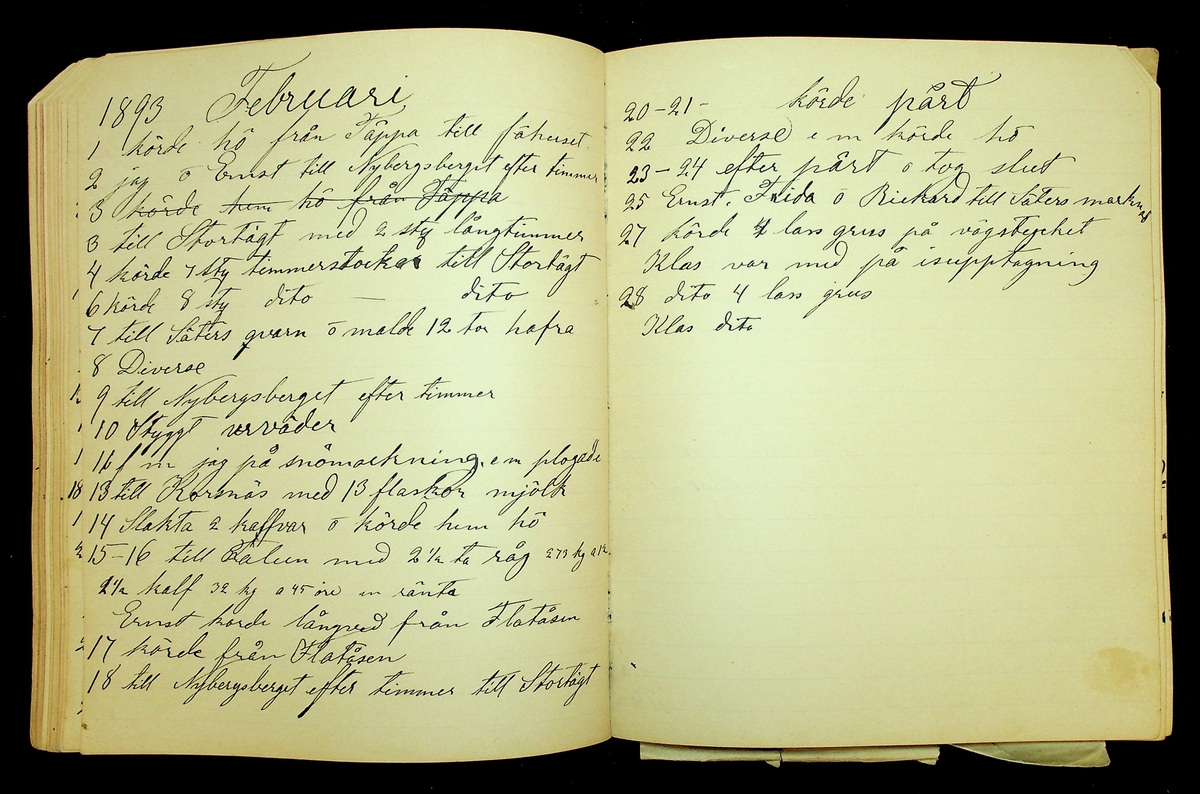 1893 Februari,
1 körde hö från Täppa till fähuset.
2 jag o Ernst till Nybergsberget efter timmer
3 körde hem hö från Täppa
3 till Stortägt med 2 sty långtimmer
4 körde 7 sty timmerstockar till Stortägt
6 körde 8 sty dito — dito
7 till Säters qvarn o malde 12 tor hafra
8 Diverse
9 till Nybergsberget efter timmer
10 Styggt urväder
f m jag på snömockning, e m plogade
13 till Korsnäs med 13 flaskor mjölk
14 Slakta 2 kalfvar o körde hem hö
15-16 till Falun med 2 1/2 ta råg 273 kg a
kalf 32 kg a 45 öre en ränta
Ernst körde långved från Flatåsen
17 körde från Flatåsen
18 till Nybergsberget efter timmer till Stortägt
20-21- körde pårt
22 Diverse e m körde hö
23-24 efter pårt o tog slut
25 Ernst. Frida o Rickard till Säters marknad
27 körde 4 lass grus på vägstycket
Klas var med på isupptagning
28 dito 4 lass grus
Klas dito